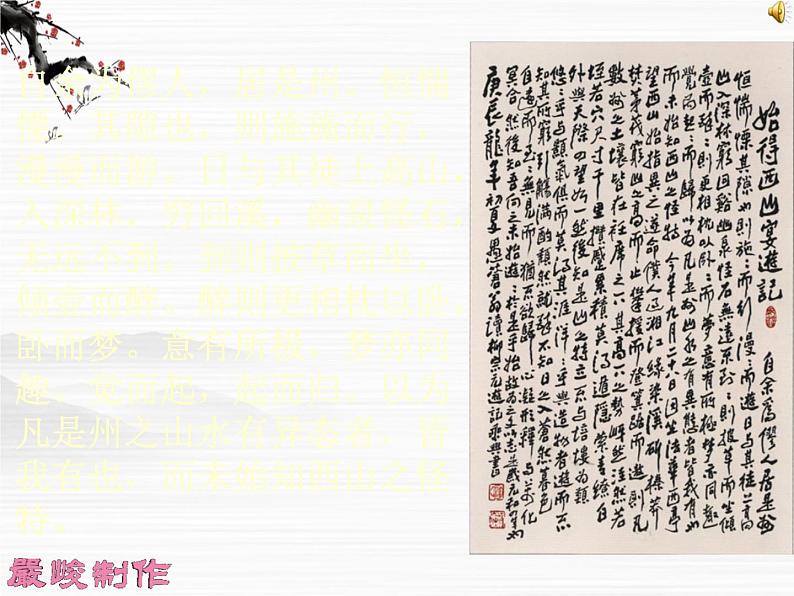 自余为僇人，居是州，恒惴
慄。其隙也，则施施而行，
漫漫而游。日与其徒上高山，
入深林，穷回溪，幽泉怪石，
无远不到。到则披草而坐，
倾壶而醉。醉则更相枕以卧，
卧而梦。意有所极，梦亦同
趣。觉而起，起而归。以为
凡是州之山水有异态者，皆
我有也，而未始知西山之怪
特。
始得西山宴遊記
自余為僇人居是州
恒惴慄其隙也則施施而行漫漫而遊日與其徒上高
山入深林窮回谿幽泉怪石無遠不到到則披草而坐傾
壺而醉醉則更相枕以臥臥而夢意有所極夢亦同趣
覺而起起而歸以為凡是州山水之有異態者皆我有也
而未始知西山之怪特今年九月二十八日因坐法華西亭
望西山始指異之遂命僕人過湘江緣染溪斫榛莽
焚茅茷窮山之高而止攀援而登箕踞而遨則凡
數州之土壤皆在衽席之下其高下之勢岈然洼然若
垤若穴尺寸千里攢蹙累積莫得遯隱縈青繚白
外與天際四望如一然後知是山之特立不與培塿為類
悠悠乎與顥氣俱而莫得其涯洋洋乎與造物者遊而不
知其所窮引觴滿酌頹然就醉不知日之入蒼然暮色
自遠而至至無所見而猶不欲歸心凝形釋與萬化
冥合然後知吾嚮之未始遊遊於是乎始故為之文以志是歲元和四年也
庚辰龍年初夏愚翁讀柳宗元遊記乘興書
嚴峻制作